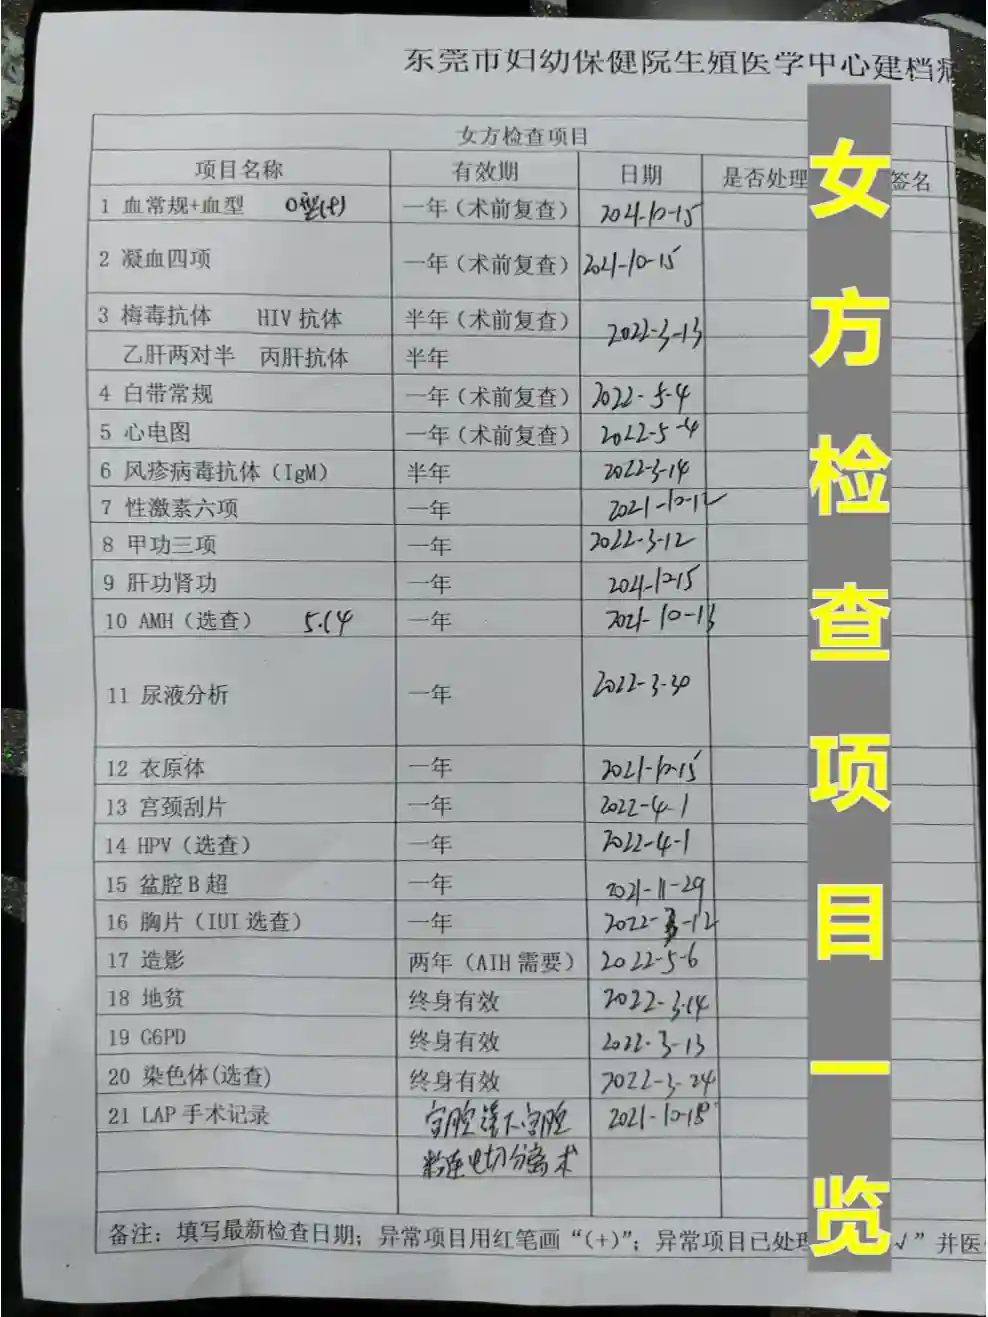 东莞市妇幼保健院生殖医学中心建档病
女方检查项目
项目名称 有效期 日期 是否处理 签名
1 血常规+血型 O型(+) 一年（术前复查） 2021-10-15
2 凝血四项 一年（术前复查） 2021-10-15
3 梅毒抗体 HIV 抗体 半年（术前复查） 2022-3-13
乙肝两对半 丙肝抗体 半年
4 白带常规 一年（术前复查） 2022-5-4
5 心电图 一年（术前复查） 2022-5-4
6 风疹病毒抗体（IgM） 半年 2022-3-14
7 性激素六项 一年 2021-10-12
8 甲功三项 一年 2022-3-12
9 肝功肾功 一年 2021-10-15
10 AMH（选查） 5.14 一年 2021-10-13
11 尿液分析 一年 2022-3-30
12 衣原体 一年 2021-10-15
13 宫颈刮片 一年 2022-4-1
14 HPV（选查） 一年 2022-4-1
15 盆腔 B 超 一年 2021-11-29
16 胸片（IUI 选查） 一年 2022-3-12
17 造影 两年（AIH 需要） 2022-5-6
18 地贫 终身有效 2022-3-14
19 G6PD 终身有效 2022-3-13
20 染色体(选查) 终身有效 2022-3-24
21 LAP 手术记录 宫腔镜下宫腔 2021-10-18
粘连电切分离术
备注：填写最新检查日期；异常项目用红笔画“(+)”；异常项目已处理 √”并医
女方检查项目一览